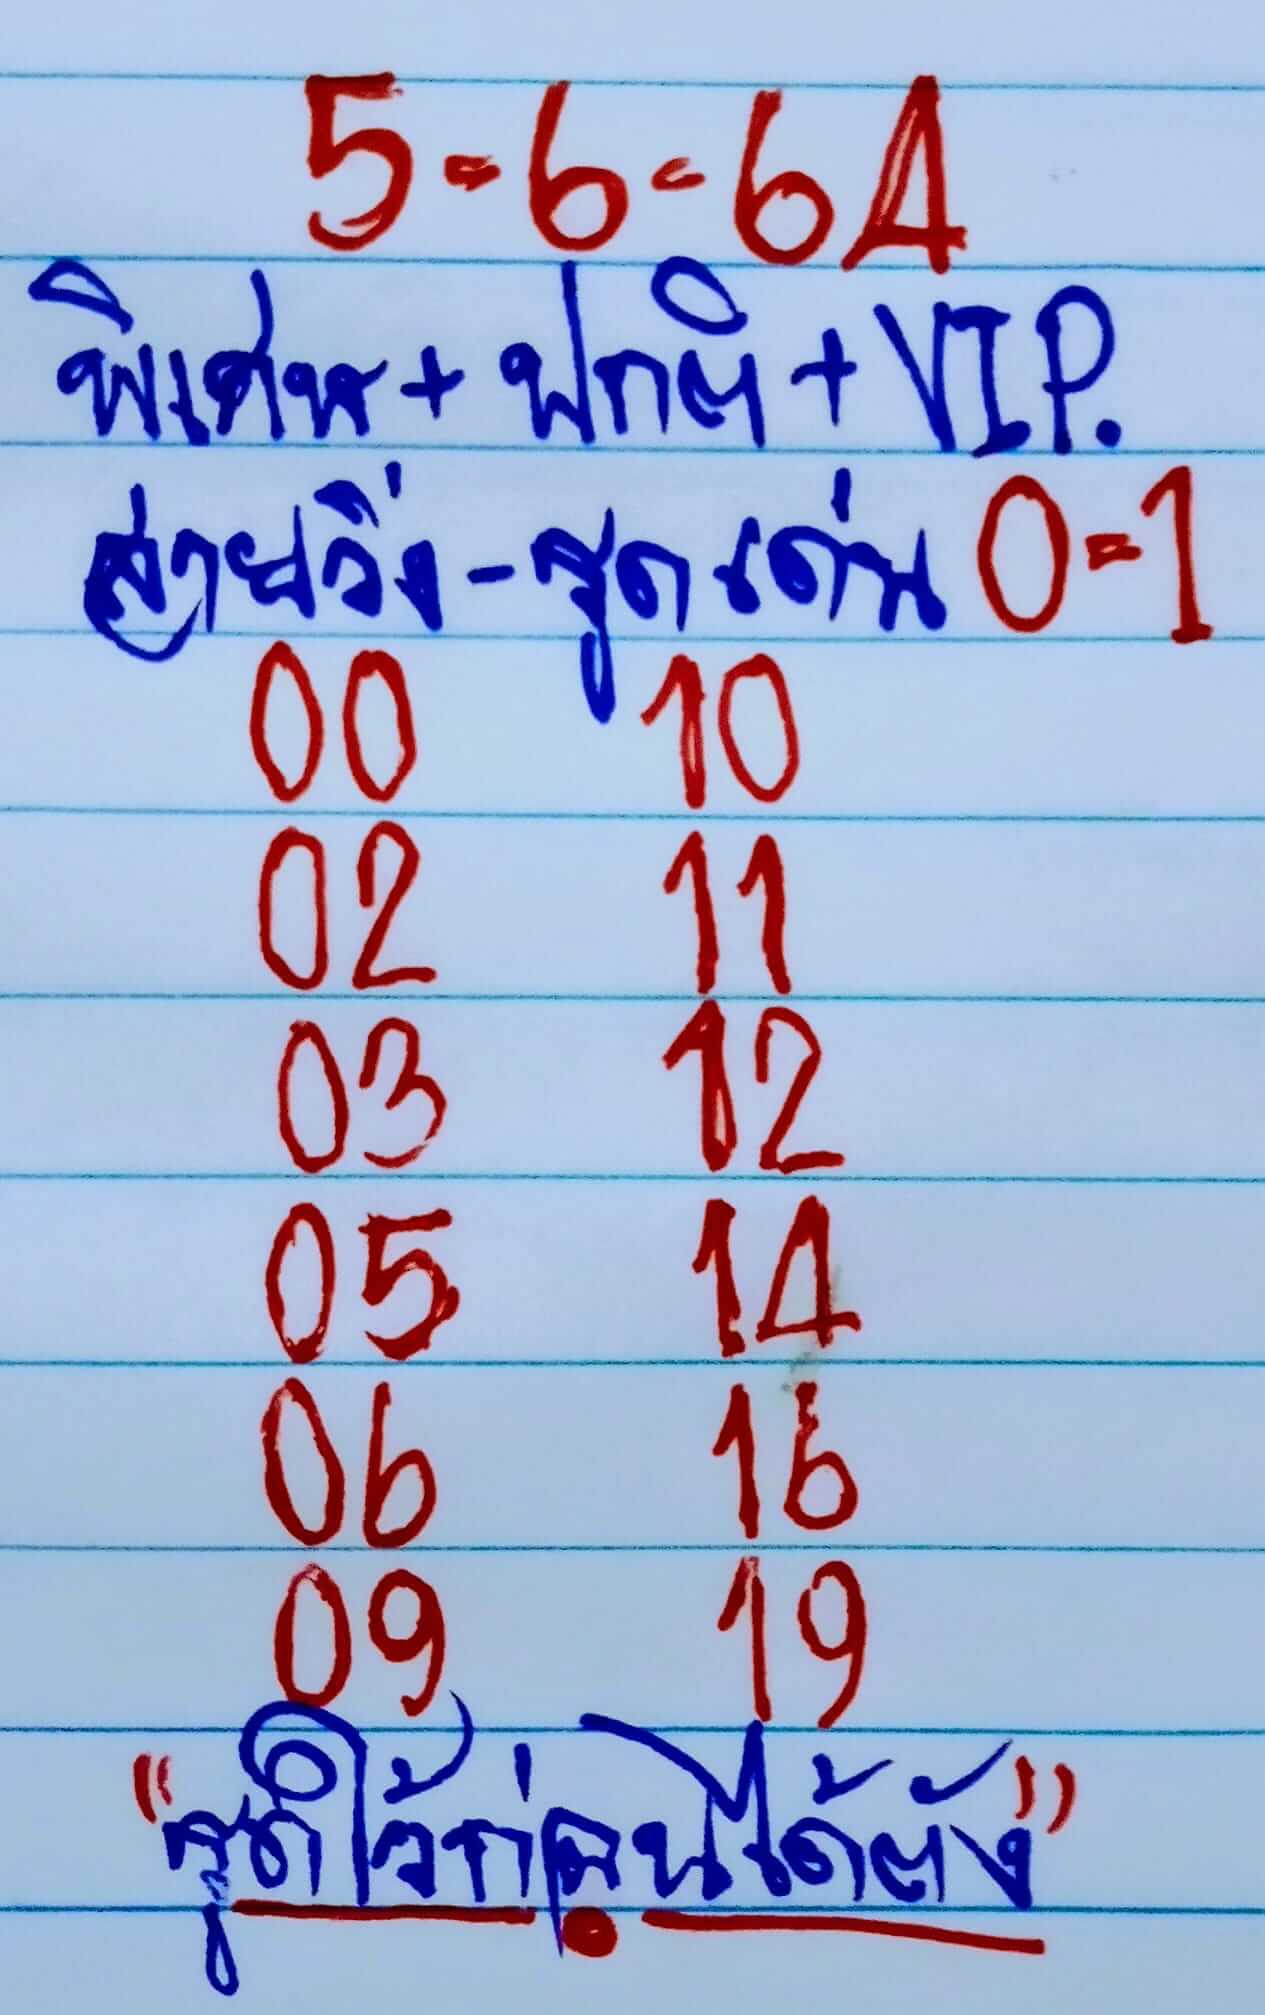 5-6-64
พิเศษ + ปกติ + VIP.
สายวิ่ง - รูดเด่น 0-1
00 10
02 11
03 12
05 14
06 16
09 19
"รูดไว้ก่อนได้ตัง"